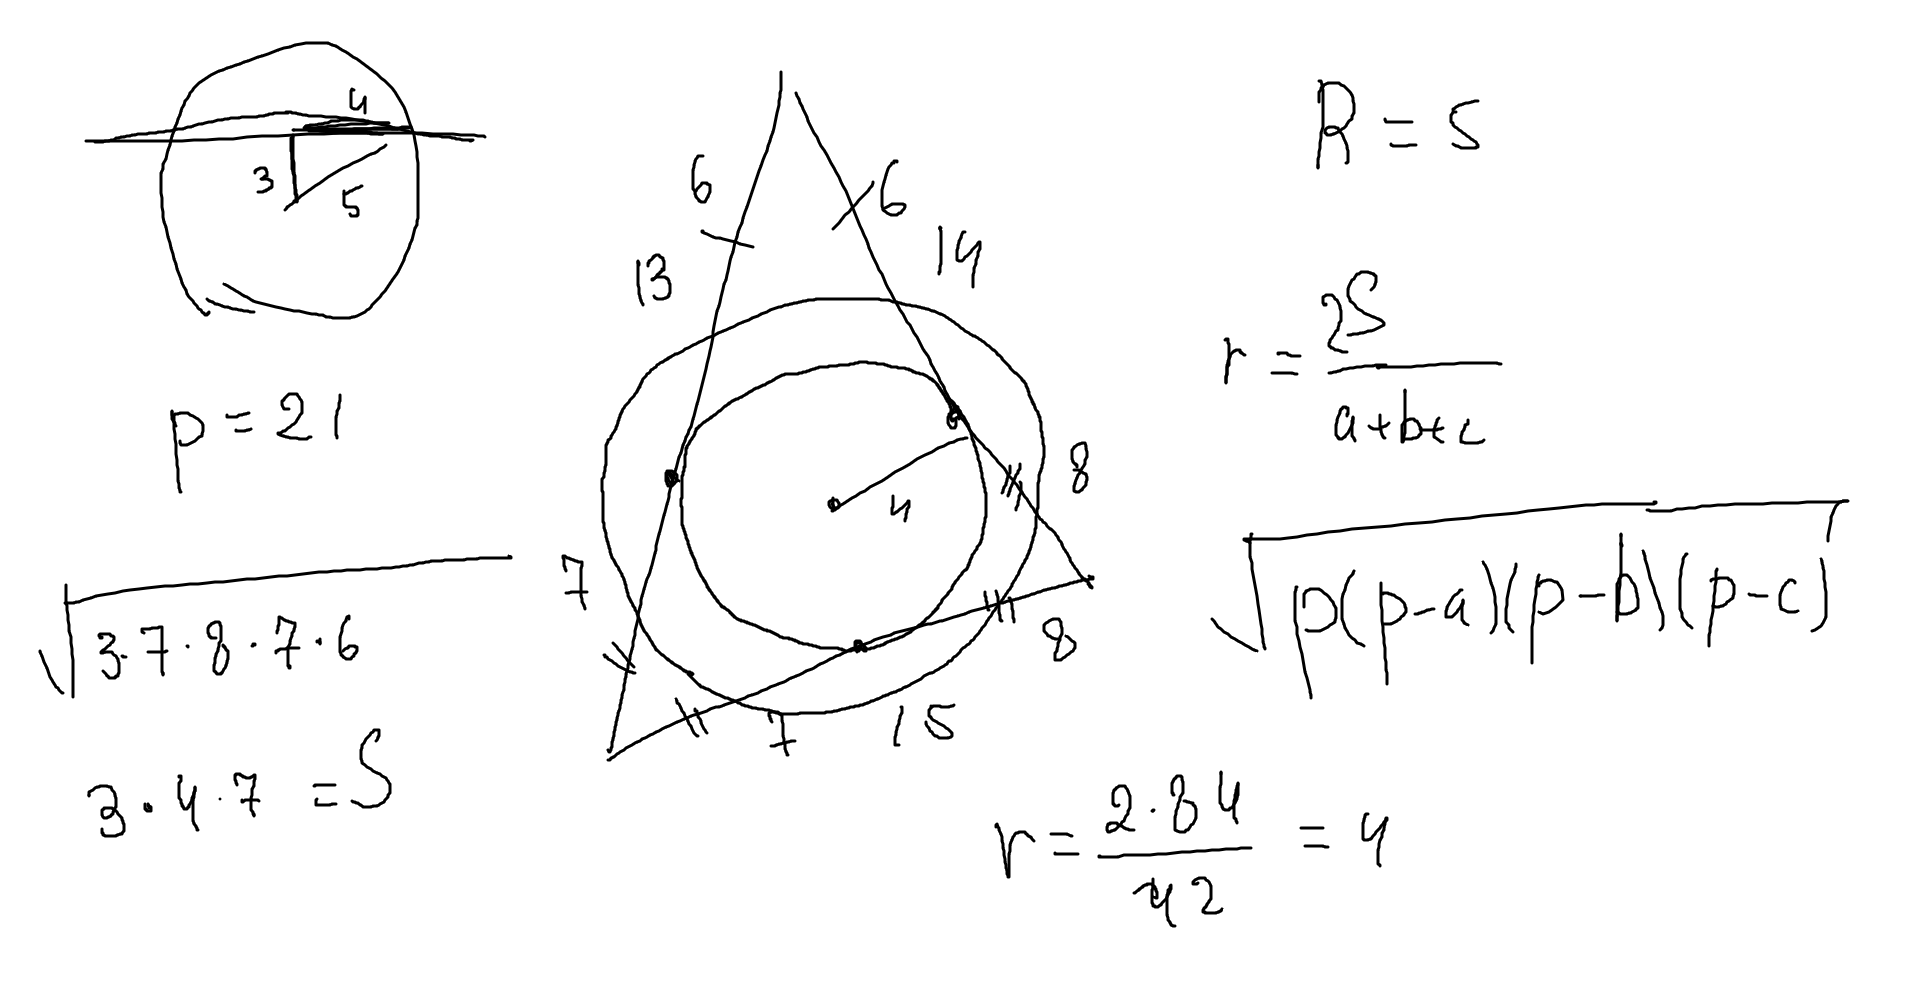 4
3
5
p = 21
√3·7·8·7·6
3·4·7 = S
6
6
13
14
4
8
7
8
7
15
R = 5
r = 2S / a+b+c
√p(p-a)(p-b)(p-c)
r = 2·84 / 42 = 4